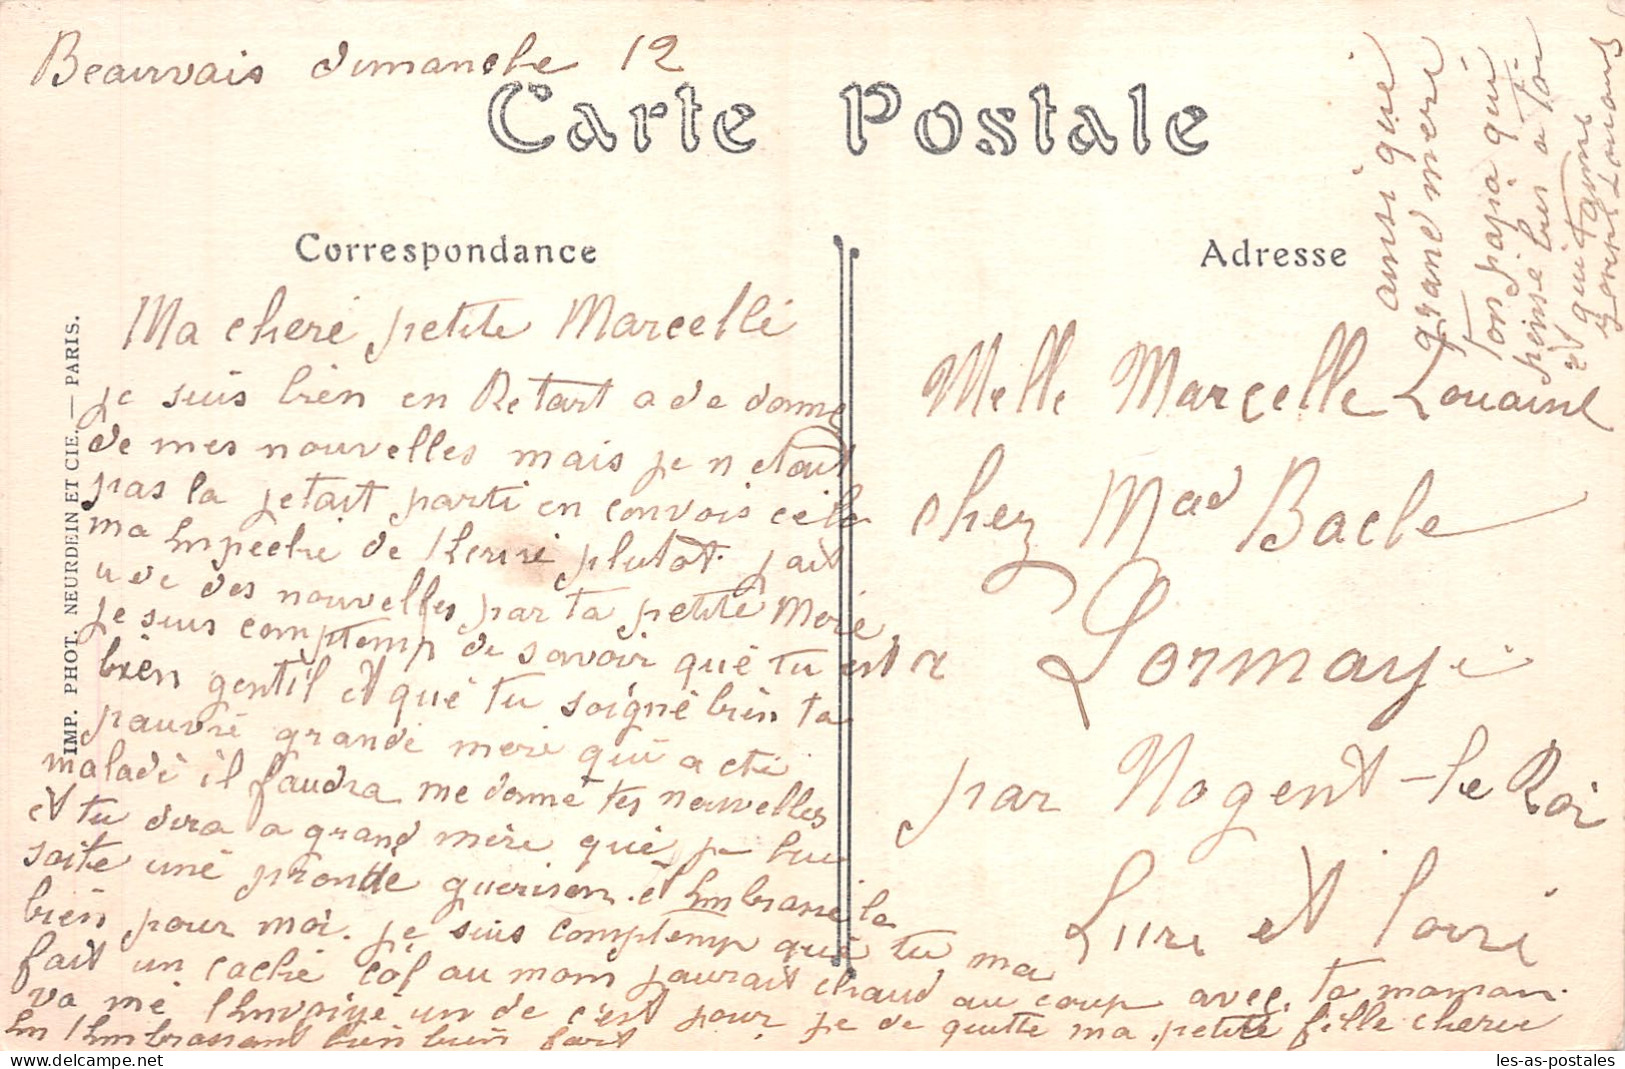 Beauvais dimanche 12
Carte Postale
Correspondance
Adresse
Ma cheré petite Marcelle
je suis bien en Retart a de donné
de mes nouvelles mais je n etait
pas la jetait parti en convois cé le
ma Impeché de lecrire plutot. jait
u de des nouvelles par ta petite Mere
je suis comptemp de savoir qué tu est
bien gentil et qué tu soigné bien ta
pauvre grande mere qui a eté
maladé il faudra me donné tes nouvelles
et tu dira a grand mére qué je lui
soite uné pronte guerison. et Embrasse la
bien pour moi. je suis comptemp qué tu ma
fait un caché col au mom jaurait chaud au coup avec. ta maman
va mé l'envoiyé un de c'est jour. je de quitte ma petite fille cherie
En l'Embrassant bien bien fort
ainsi que
grand mere
ton papa qui
pense bien a toi
et qui t'aime
Melle Marcelle Louaint
chez Mad Bacle
Lormaye
par Nogent-le Roi
Eure et Loire
IMP. PHOT. NEURDEIN ET CIE. — PARIS.
les-as-postales